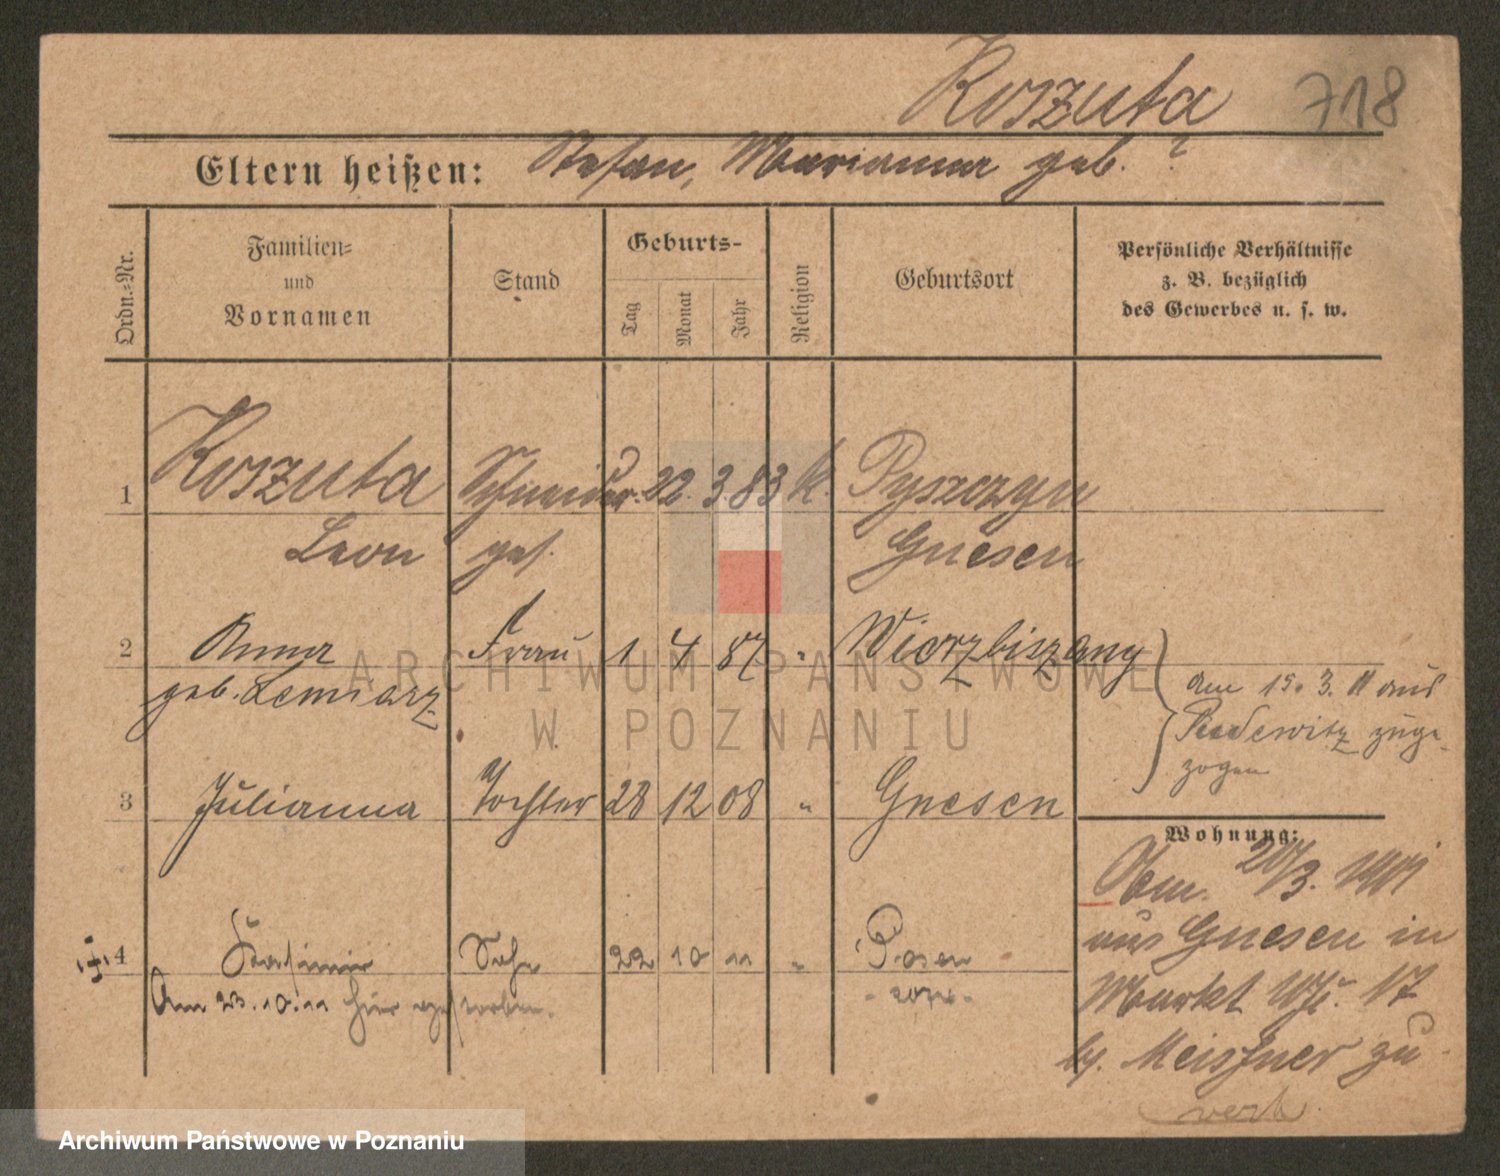 Koszuta 718
Eltern heißen: Stefan, Marianna geb. ?
Ordn.-Nr.
Familien-
und
Vornamen
Stand
Geburts-
Tag
Monat
Jahr
Religion
Geburtsort
Persönliche Verhältnisse
z. B. bezüglich
des Gewerbes u. s. w.
1 Koszuta Schneider 22. 3. 83 k. Pyszczyn
Leon ges. Gnesen
2 Anna Frau 1 4 87 " Wierzbiszany
geb. Lemiarz
am 15. 3. 11 aus
zuge-
zogen
3 Julianna Tochter 28 12 08 " Gnesen
Wohnung:
20/3. 1911
aus Gnesen in
Markt 17
b/. Meissner zu
verh
4 Kasimir Sohn 22 10 11 " Posen
Am 23. 10. 11 hier gestorben.
ARCHIWUM PAŃSTWOWE
W POZNANIU
Archiwum Państwowe w Poznaniu